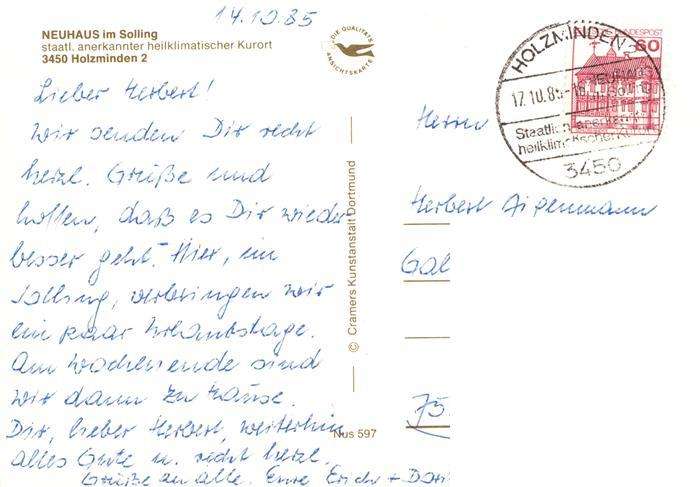 14.10.85
NEUHAUS im Solling
staatl. anerkannter heilklimatischer Kurort
3450 Holzminden 2
DIE QUALITÄTS
ANSICHTSKARTE
Lieber Herbert!
Wir senden Dir recht
herzl. Grüße und
hoffen, daß es Dir wieder
besser geht. Hier, im
Solling, verbringen wir
ein paar Urlaubstage.
Am Wochenende sind
wir dann zu Hause.
Dir, lieber Herbert, weiterhin
alles Gute u. recht herzl.
Grüße an alle. Eure Erich + Dori
© Cramers Kunstanstalt Dortmund
Nus 597
HOLZMINDEN 2
17.10.85
NEUHAUS
Staatlich anerkannter
heilklimatischer
3450
BUNDESPOST
60
Herrn
Herbert
Gal
75